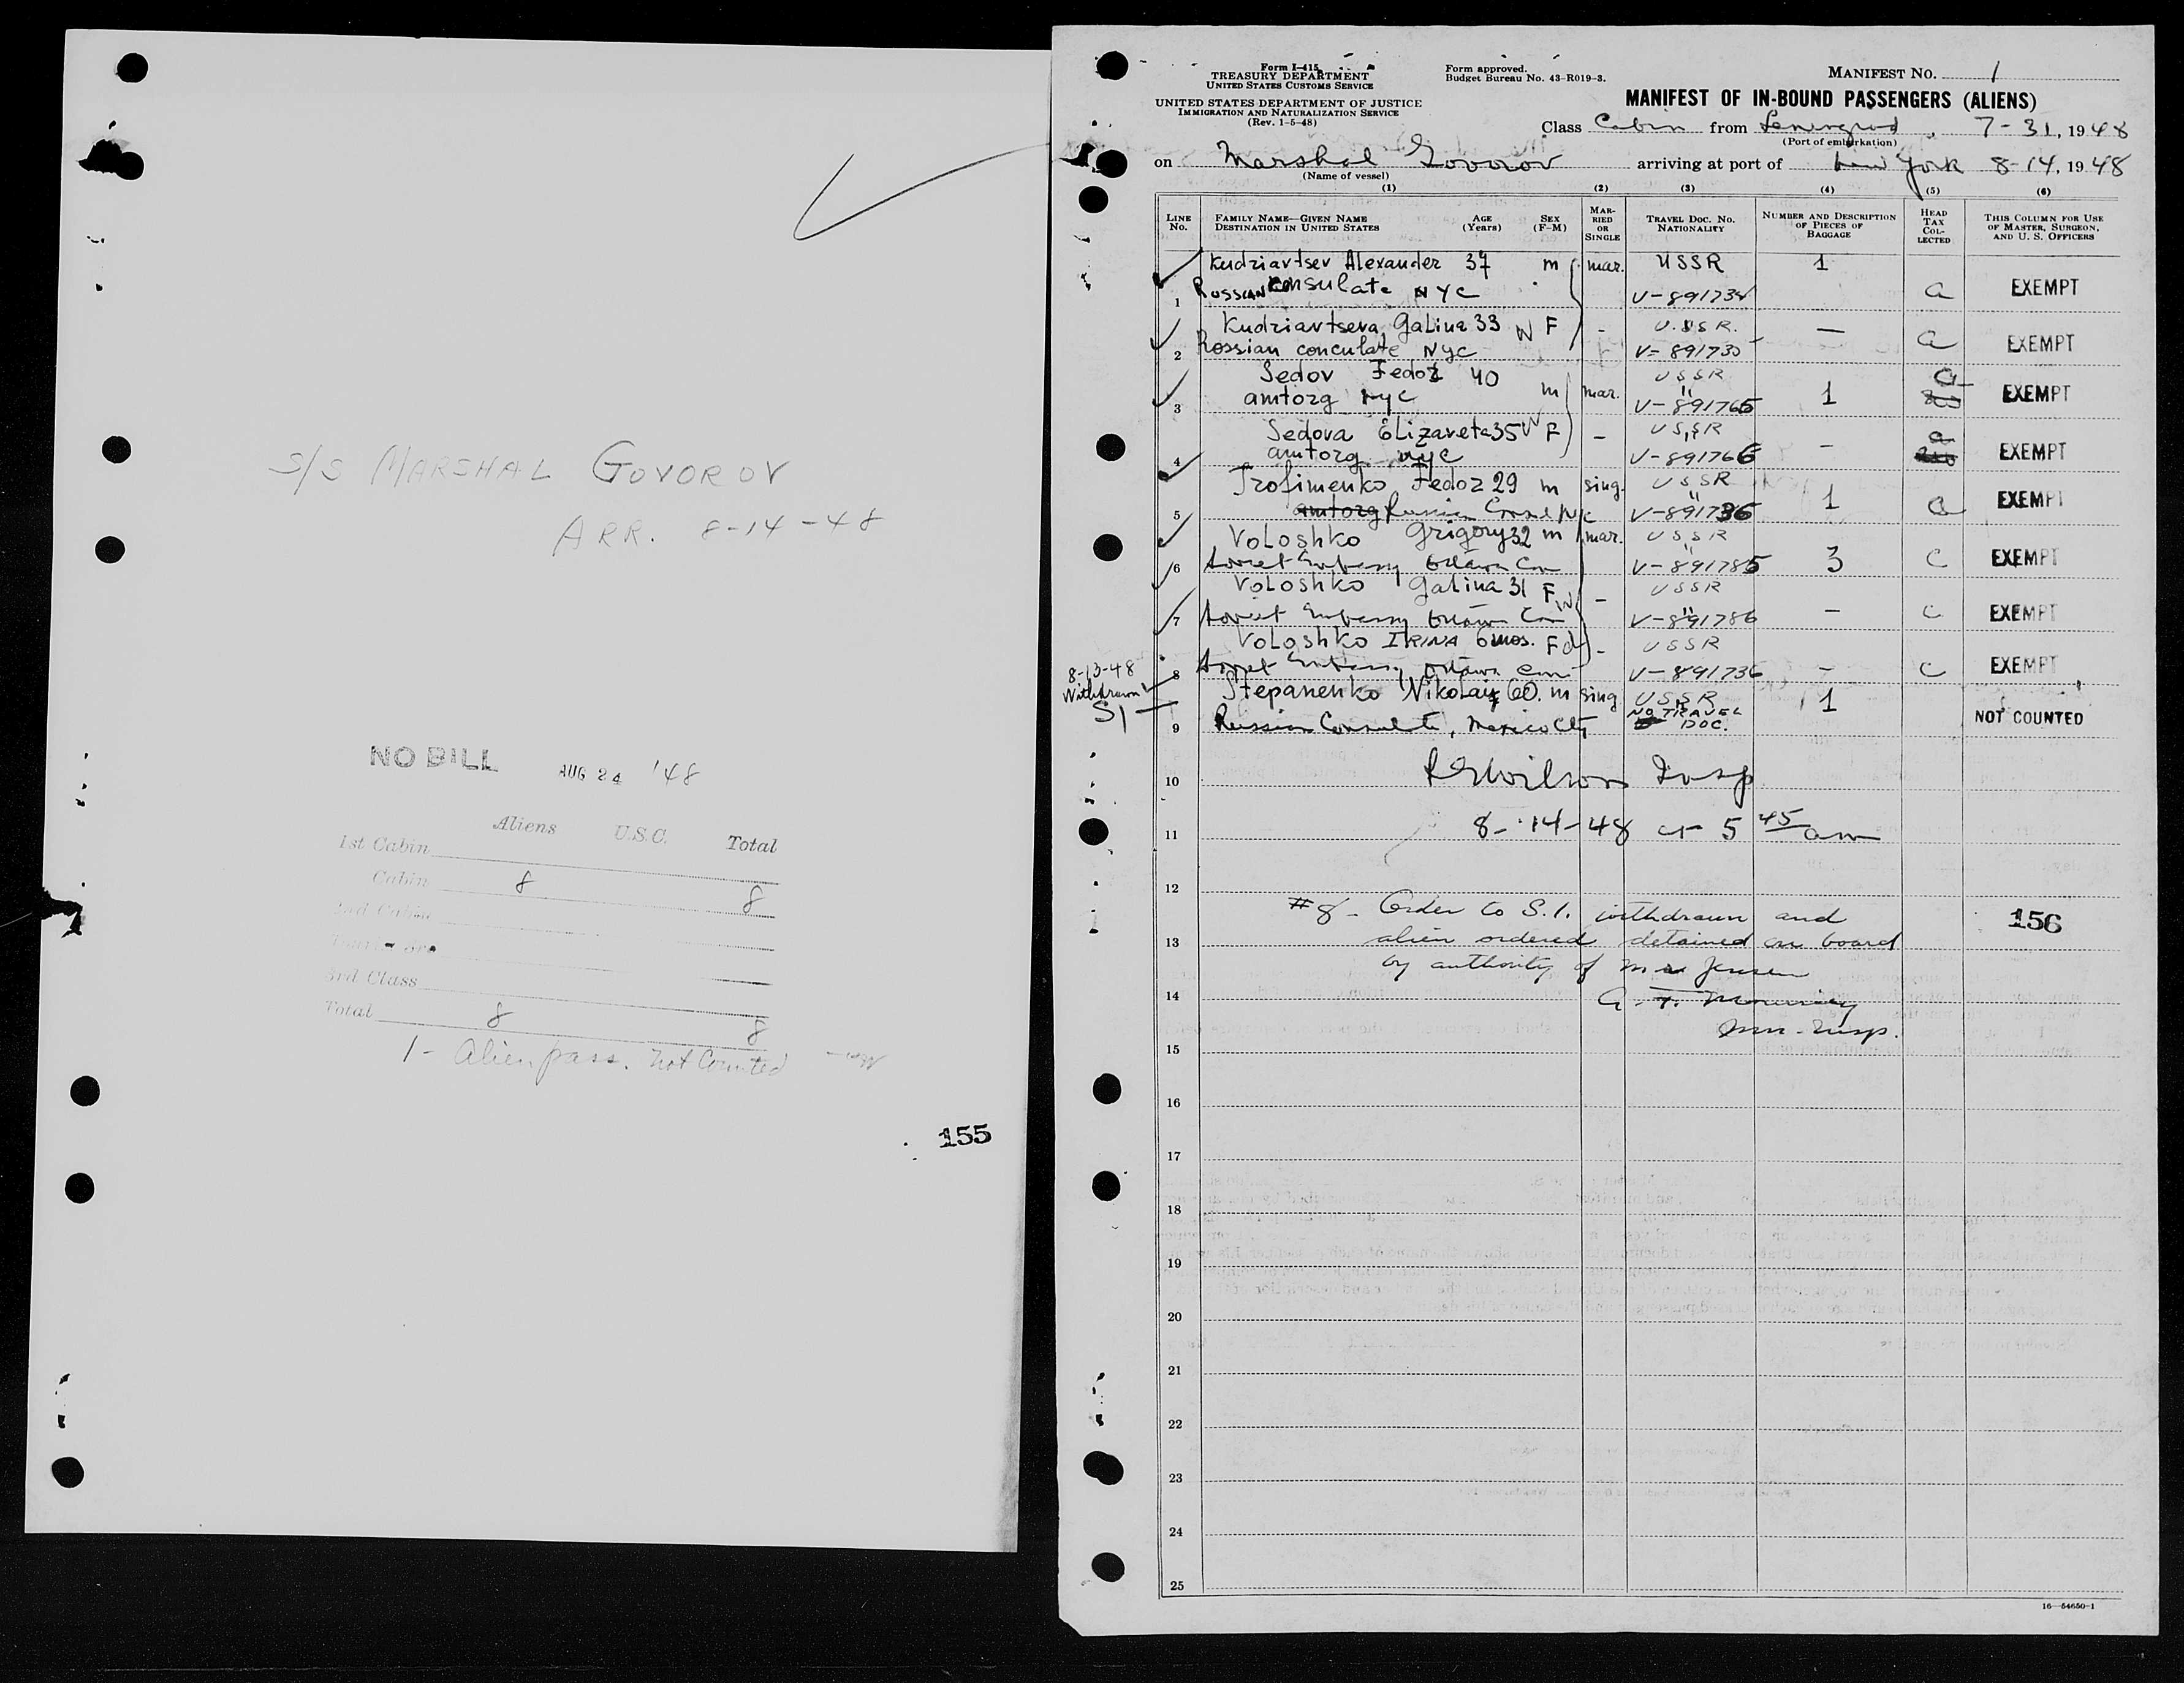 S/S MARSHAL GOVOROV
ARR. 8-14-48
NO BILL AUG 24 '48
Aliens U.S.C. Total
1st Cabin
Cabin 8 8
2nd Cabin
3rd Class
Total 8 8
1 - Alien pass. not Counted
155
Form I-415
TREASURY DEPARTMENT
UNITED STATES CUSTOMS SERVICE
UNITED STATES DEPARTMENT OF JUSTICE
IMMIGRATION AND NATURALIZATION SERVICE
(Rev. 1-5-48)
Form approved.
Budget Bureau No. 43-R019-3.
MANIFEST NO. 1
MANIFEST OF IN-BOUND PASSENGERS (ALIENS)
Class Cabin from Leningrad, 7-31, 1948
(Port of embarkation)
on Marshal Govorov arriving at port of New York 8-14, 1948
(Name of vessel)
(1) (2) (3) (4) (5) (6)
LINE No. FAMILY NAME—GIVEN NAME DESTINATION IN UNITED STATES AGE (Years) SEX (F-M) MARRIED OR SINGLE TRAVEL DOC. NO. NATIONALITY NUMBER AND DESCRIPTION OF PIECES OF BAGGAGE HEAD TAX COLLECTED THIS COLUMN FOR USE OF MASTER, SURGEON, AND U. S. OFFICERS
Kudriavtsev Alexander 37 m mar. USSR 1
1 RUSSIAN Consulate NYC V-891734 a EXEMPT
Kudriavtseva, Galina 33 W F - U.S.S.R. —
2 Rossian conculate NYC V-891735 a EXEMPT
Sedov Fedor 40 m mar. USSR
3 amtorg NYC V-891765 1 a EXEMPT
Sedova Elizaveta 35 W F - USSR
4 amtorg nyc V-891766 - a EXEMPT
Trofimenko Fedor 29 m sing. USSR
5 amtorg Russian Consl NYC V-891736 1 a EXEMPT
Voloshko Grigory 32 m mar. USSR
6 Soviet Embassy Ottawa Can V-891785 3 c EXEMPT
Voloshko Galina 31 F W - USSR
7 Soviet Embassy Ottawa Can V-891786 - c EXEMPT
Voloshko IRINA 6 mos. F d - USSR
8 Soviet Embassy Ottawa Can V-891736 - c EXEMPT
8-13-48
Withdrawn
SI
Stepanenko Nikolai 60. m sing USSR 1
9 Russian Consulate, Mexico City NO TRAVEL DOC. NOT COUNTED
10 Wilson Insp
11 8-14-48 at 5 45 am
12
#8 - Order to S.I. withdrawn and 156
13 alien ordered detained on board
by authority of Mr Jensen
14
Imm. Insp.
15
16
17
18
19
20
21
22
23
24
25
16—54650-1